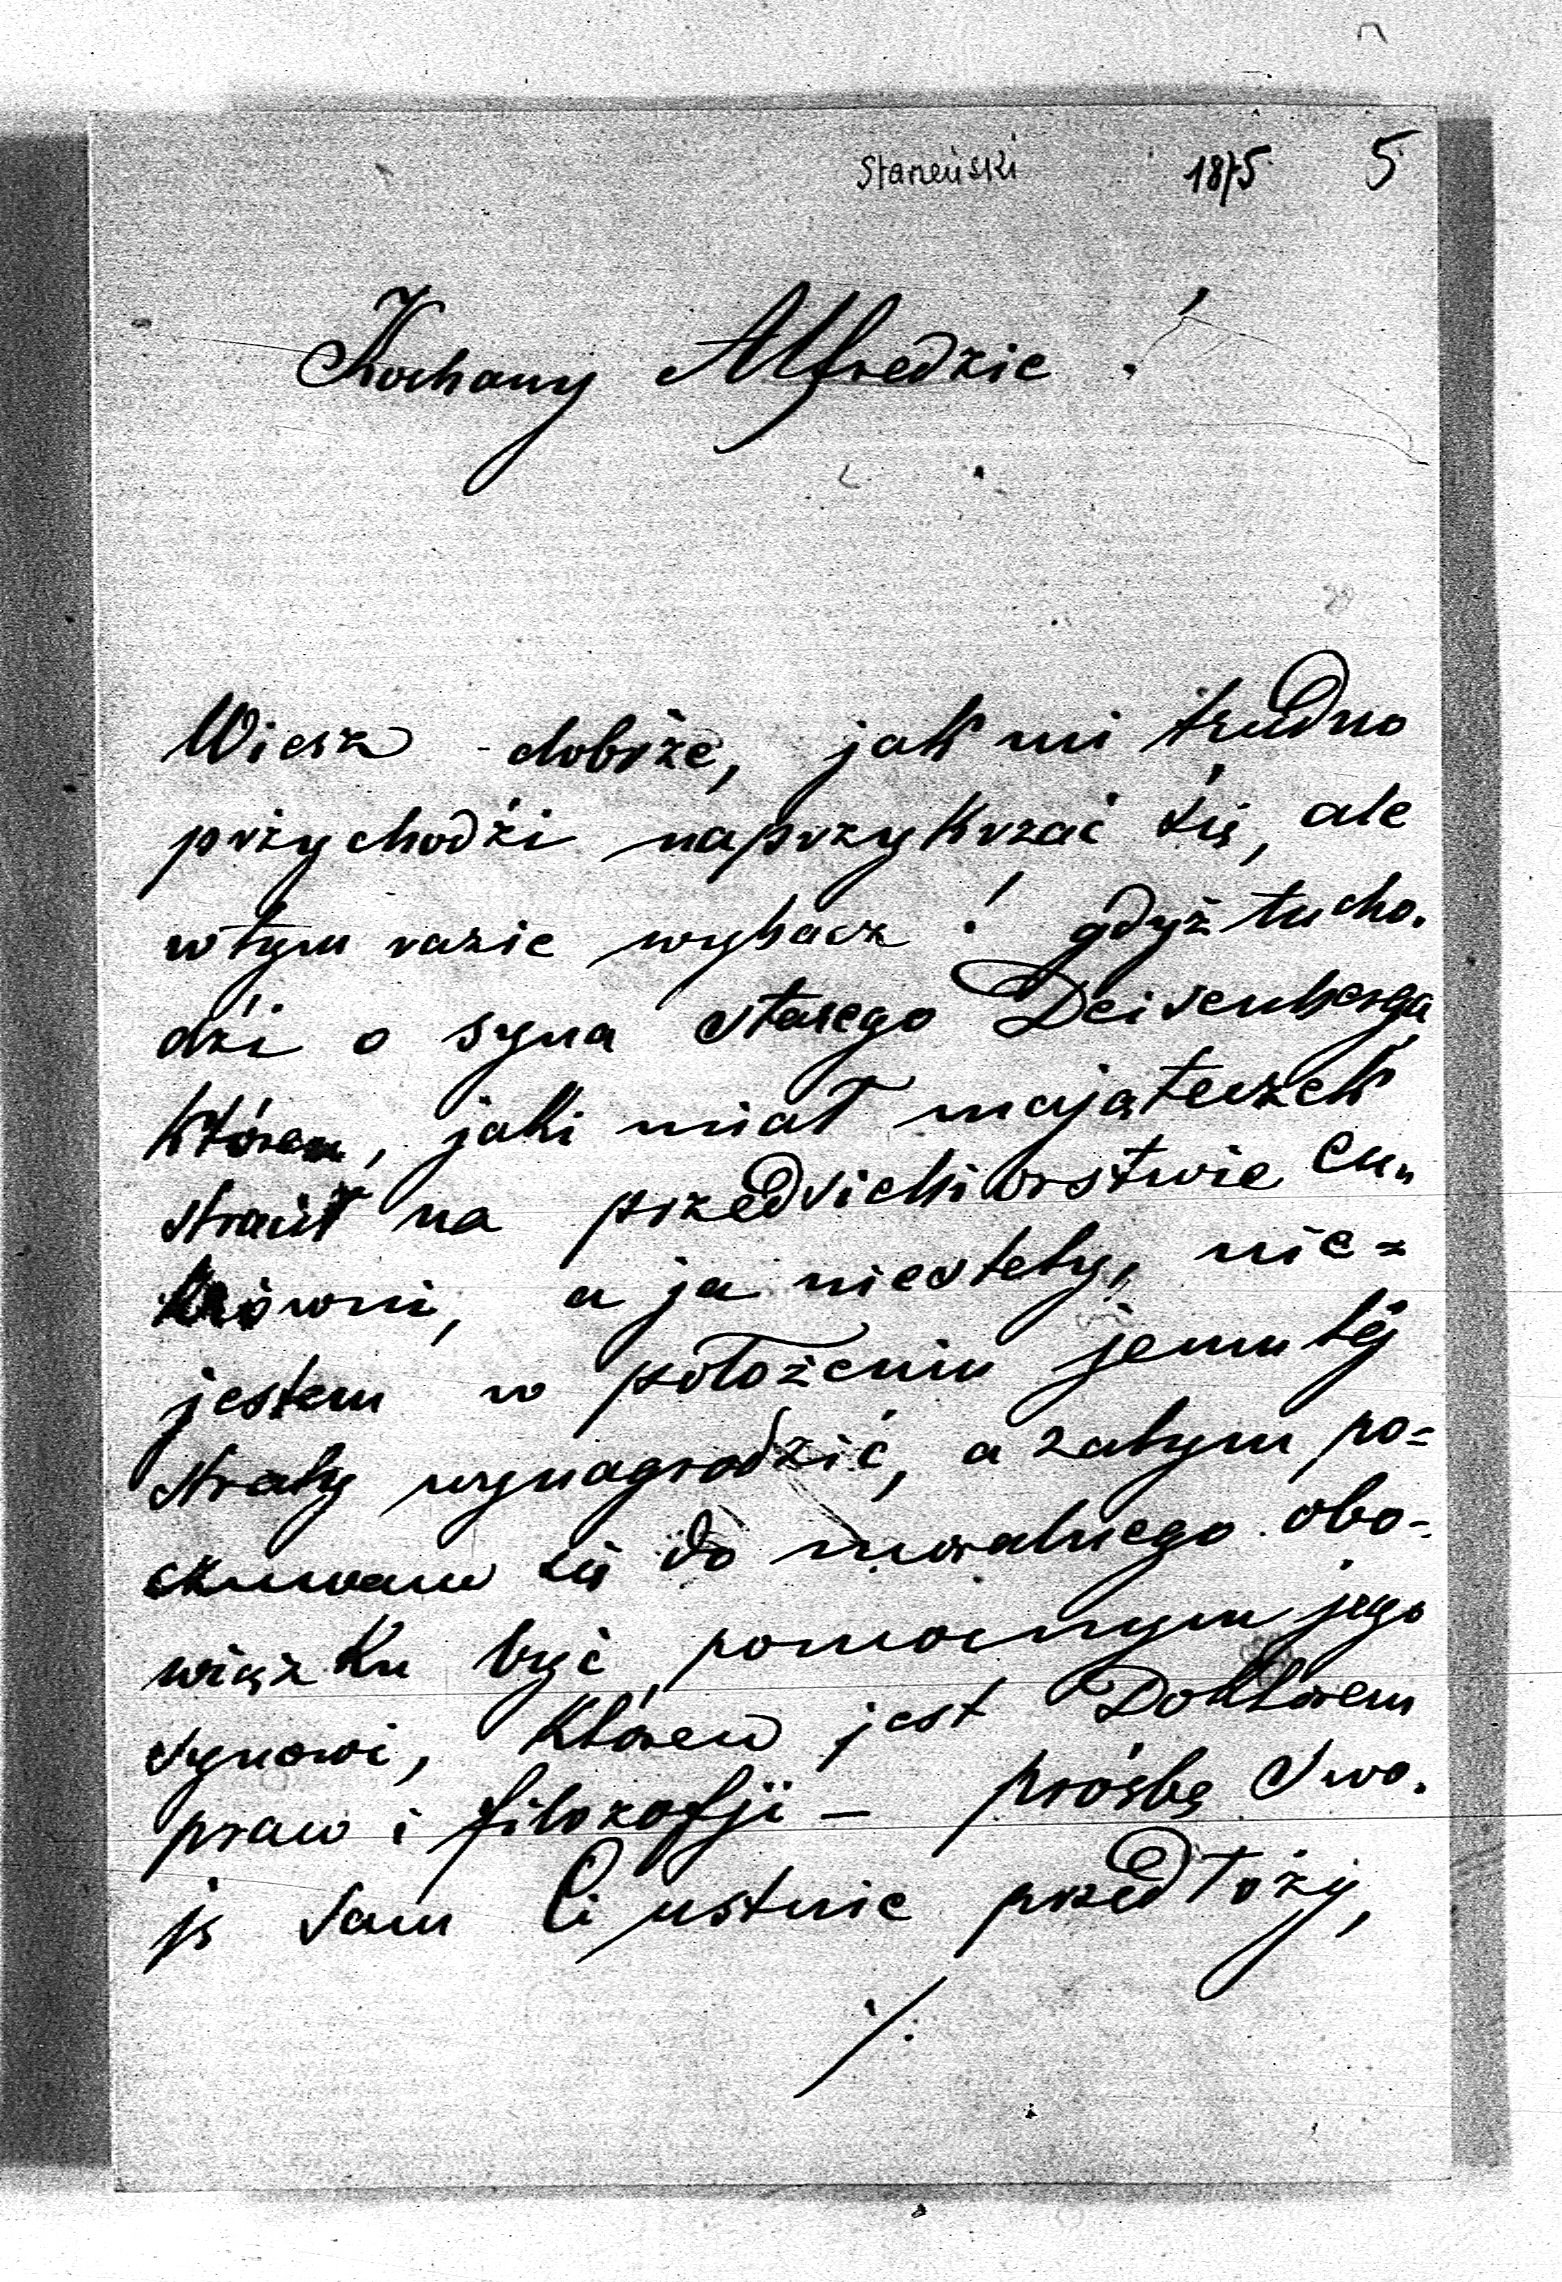 Starzeński 1875 5
Kochany Alfredzie!
Wiesz dobrże, jak mi trudno
przychodźi naprzykrzać się, ale
w tym razie wybacz! gdyż tu cho.
dźi o syna starego Deisenberga
któren, jaki miał mająteczek
stracił na przedsiebiorstwie cu„
krowni, a ja niestety, nie=
jestem w położeniu jemu téj
straty wynagrodzić, a zatym po=
czuwam się do moralnego obo-
wiązku być pomocnym jego
synowi, któren jest Doktorem
praw i filozofji — prósbę swo.
ję sam Ci ustnie przedłoży,
./.